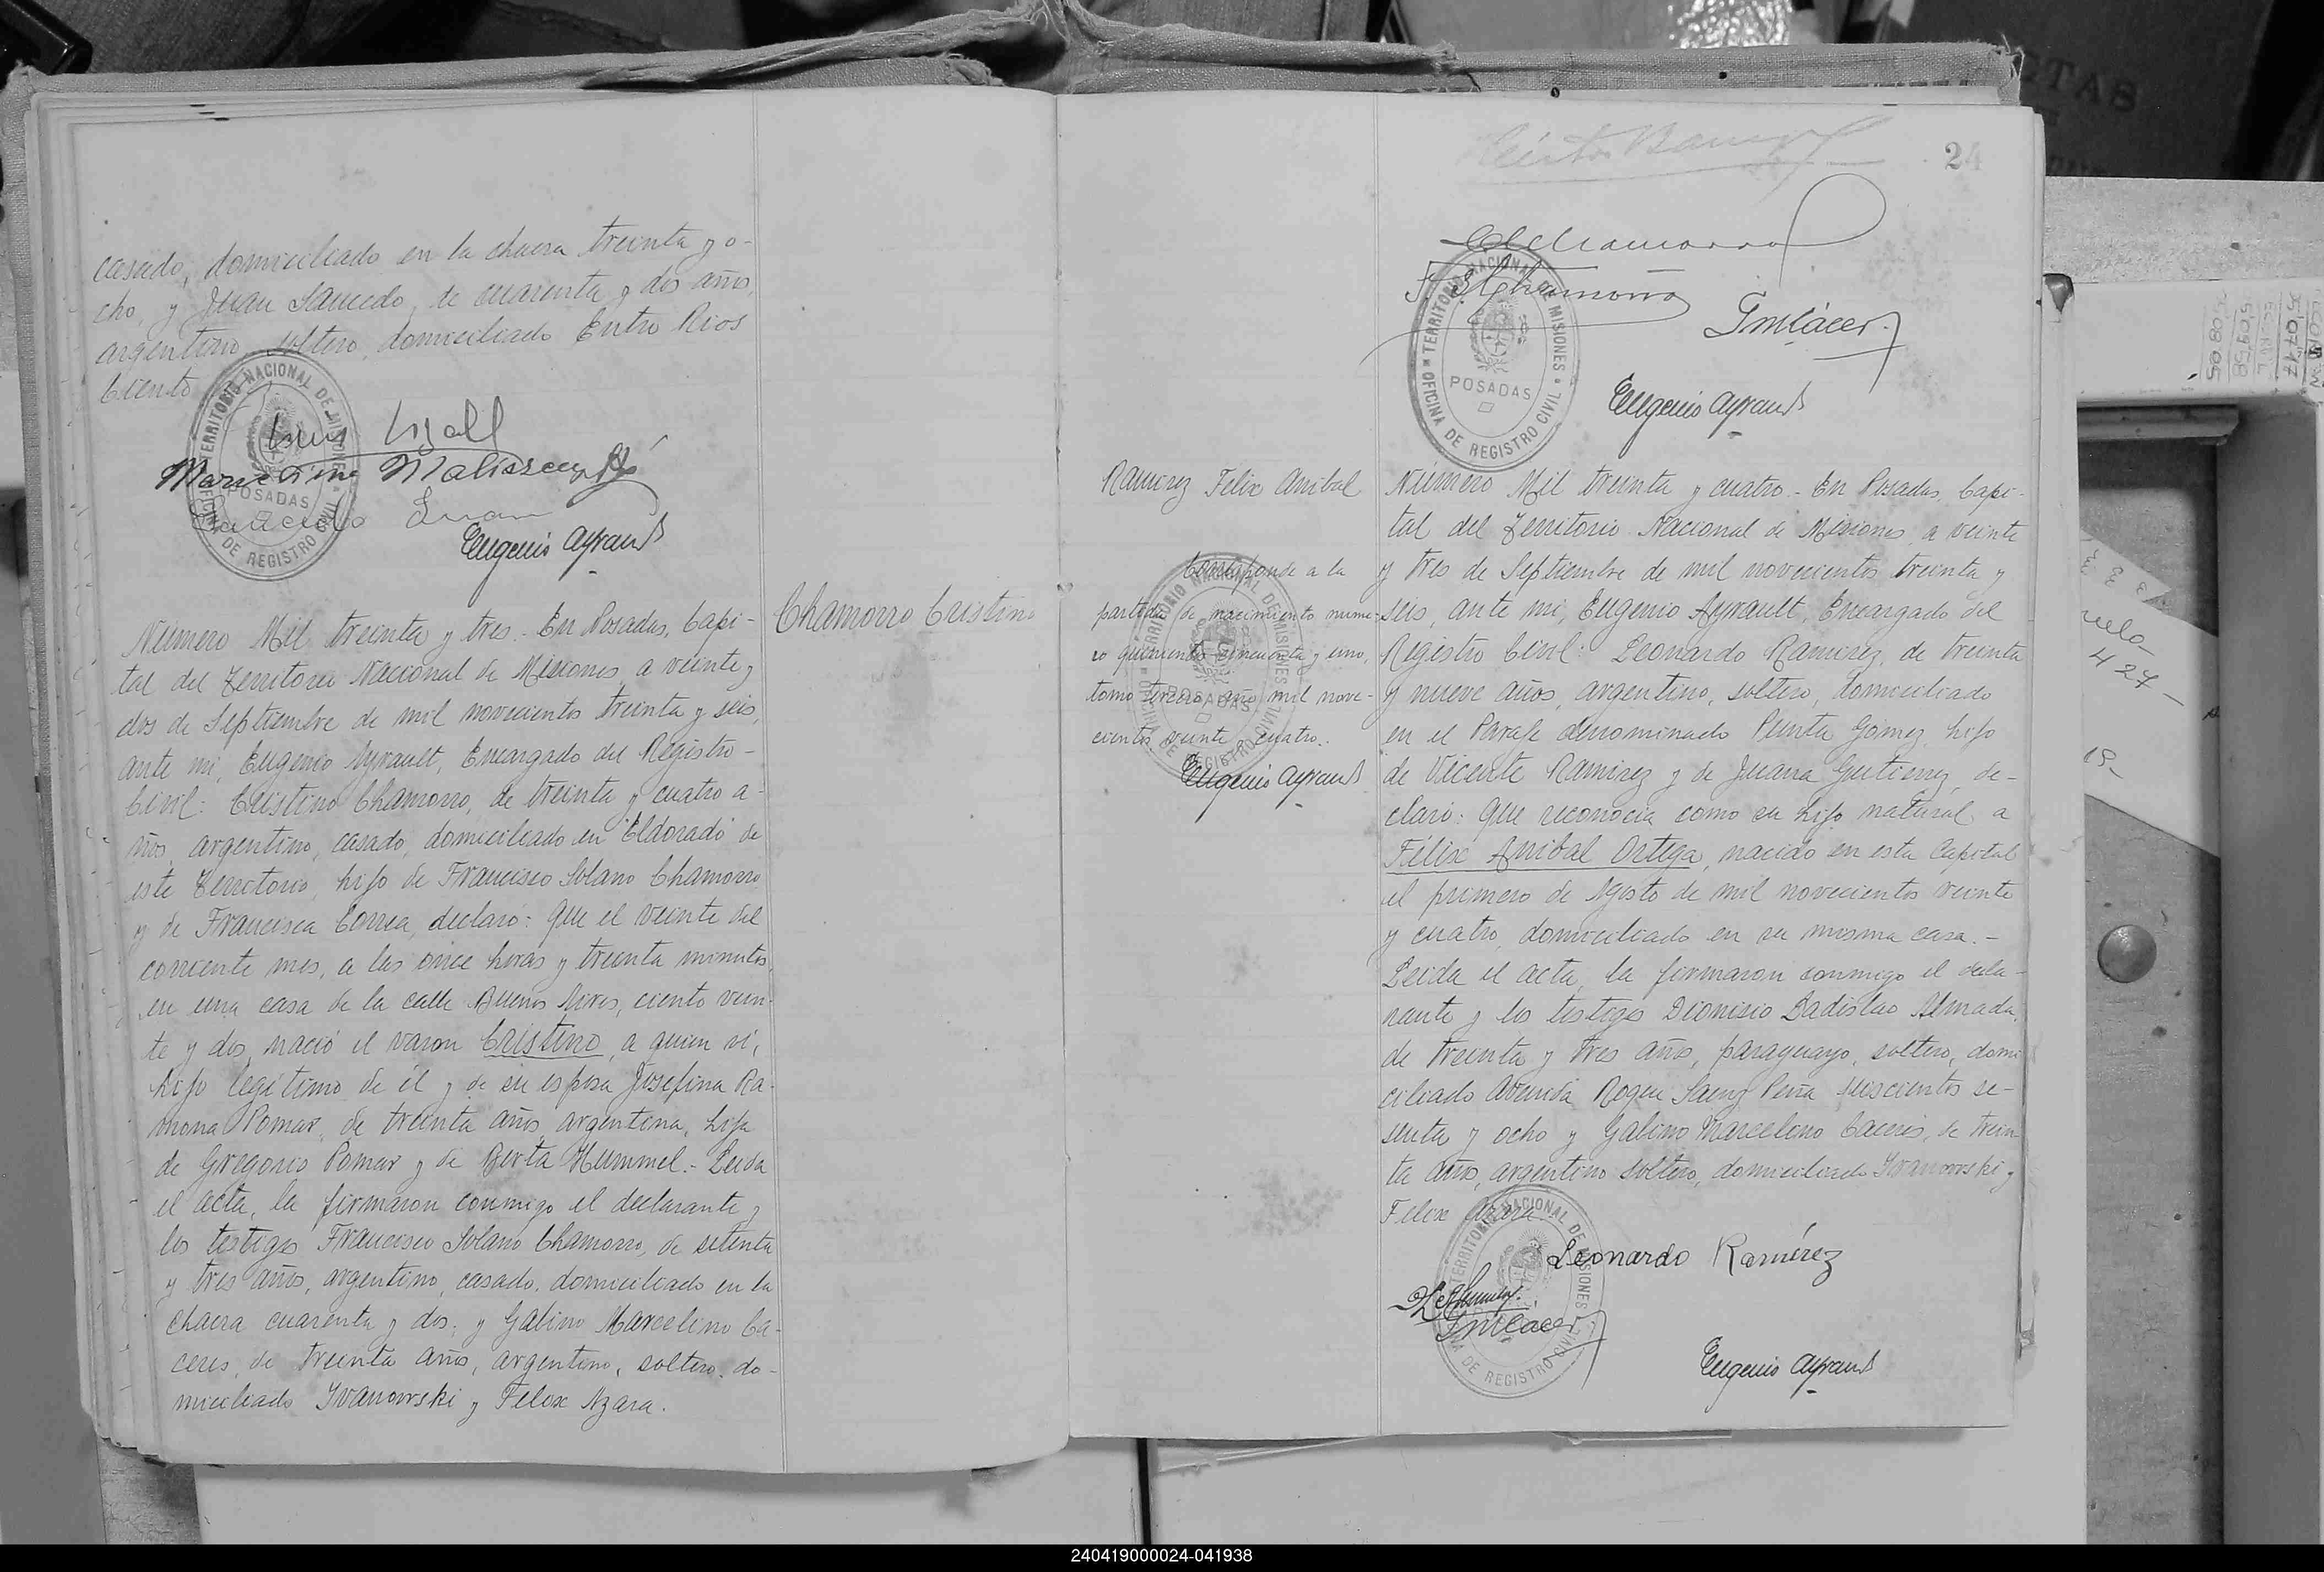 casado, domiciliado en la chacra treinta y o-
cho, y Juan Saucedo, de cuarenta y dos años,
argentino, soltero, domiciliado Entre Rios
Ciento
TERRITORIO NACIONAL DE MISIONES
POSADAS
OFICINA DE REGISTRO CIVIL
Saucedo Juan
Eugenio Ayrault
Número Mil treinta y tres.- En Posadas, Capi-
tal del Territorio Nacional de Misiones, a veinte y
dos de Septiembre de mil novecientos treinta y seis,
ante mi, Eugenio Ayrault, Encargado del Registro-
Civil: Cristino Chamorro, de treinta y cuatro a-
ños, argentino, casado, domiciliado en Eldorado de
este Territorio, hijo de Francisco Solano Chamorro
y de Francisca Correa, declaró: Que el veinte del
corriente mes, a las once horas y treinta minutos,
en una casa de la calle Buenos Aires, ciento vein-
te y dos, nació el varon Cristino, a quien ví,
hijo legítimo de él y de su esposa Josefina Ra-
mona Pomar, de treinta años, argentina, hija
de Gregorio Pomar y de Berta Hummel.- Leida
el acta, la firmaron conmigo el declarante y
los testigos Francisco Solano Chamorro, de setenta
y tres años, argentino, casado, domiciliado en la
chacra cuarenta y dos; y Galino Marcelino Cá-
ceres, de treinta años, argentino, soltero, do-
miciliado Ivanowski y Felix Azara.
Chamorro Cristino
24
CChamorro
F. S. Chamorro
GmCácer
TERRITORIO NACIONAL DE MISIONES
POSADAS
OFICINA DE REGISTRO CIVIL
Eugenio Ayrault
Ramirez Felix Anibal
Corresponde a la
partida de nacimiento núme-
ro quinientos cincuenta y uno,
tomo tercero, año mil nove-
cientos veinte y cuatro.
Eugenio Ayrault
Número Mil treinta y cuatro.- En Posadas, Capi-
tal del Territorio Nacional de Misiones, a veinte
y tres de Septiembre de mil novecientos treinta y
seis, ante mi, Eugenio Ayrault, Encargado del
Registro Civil: Leonardo Ramirez, de treinta
y nueve años, argentino, soltero, domiciliado
en el Paraje denominado Punta Gómez, hijo
de Vicente Ramirez y de Juana Gutierrez, de-
claró: Que reconocía como su hijo natural a
Félix Anibal Ortega, nacido en esta Capital
el primero de Agosto de mil novecientos veinte
y cuatro, domiciliado en su misma casa.-
Leida el acta, la firmaron conmigo el decla-
rante y los testigos Dionisio Ladislao Almada,
de treinta y tres años, paraguayo, soltero, domi-
ciliado Avenida Roque Saenz Peña seiscientos se-
senta y ocho y Galino Marcelino Cáceres, de trein-
ta años, argentino, soltero, domiciliado Ivanowski y
Felix Azara
TERRITORIO NACIONAL DE MISIONES
OFICINA DE REGISTRO CIVIL
Leonardo Ramírez
GmCácer
Eugenio Ayrault
240419000024-041938